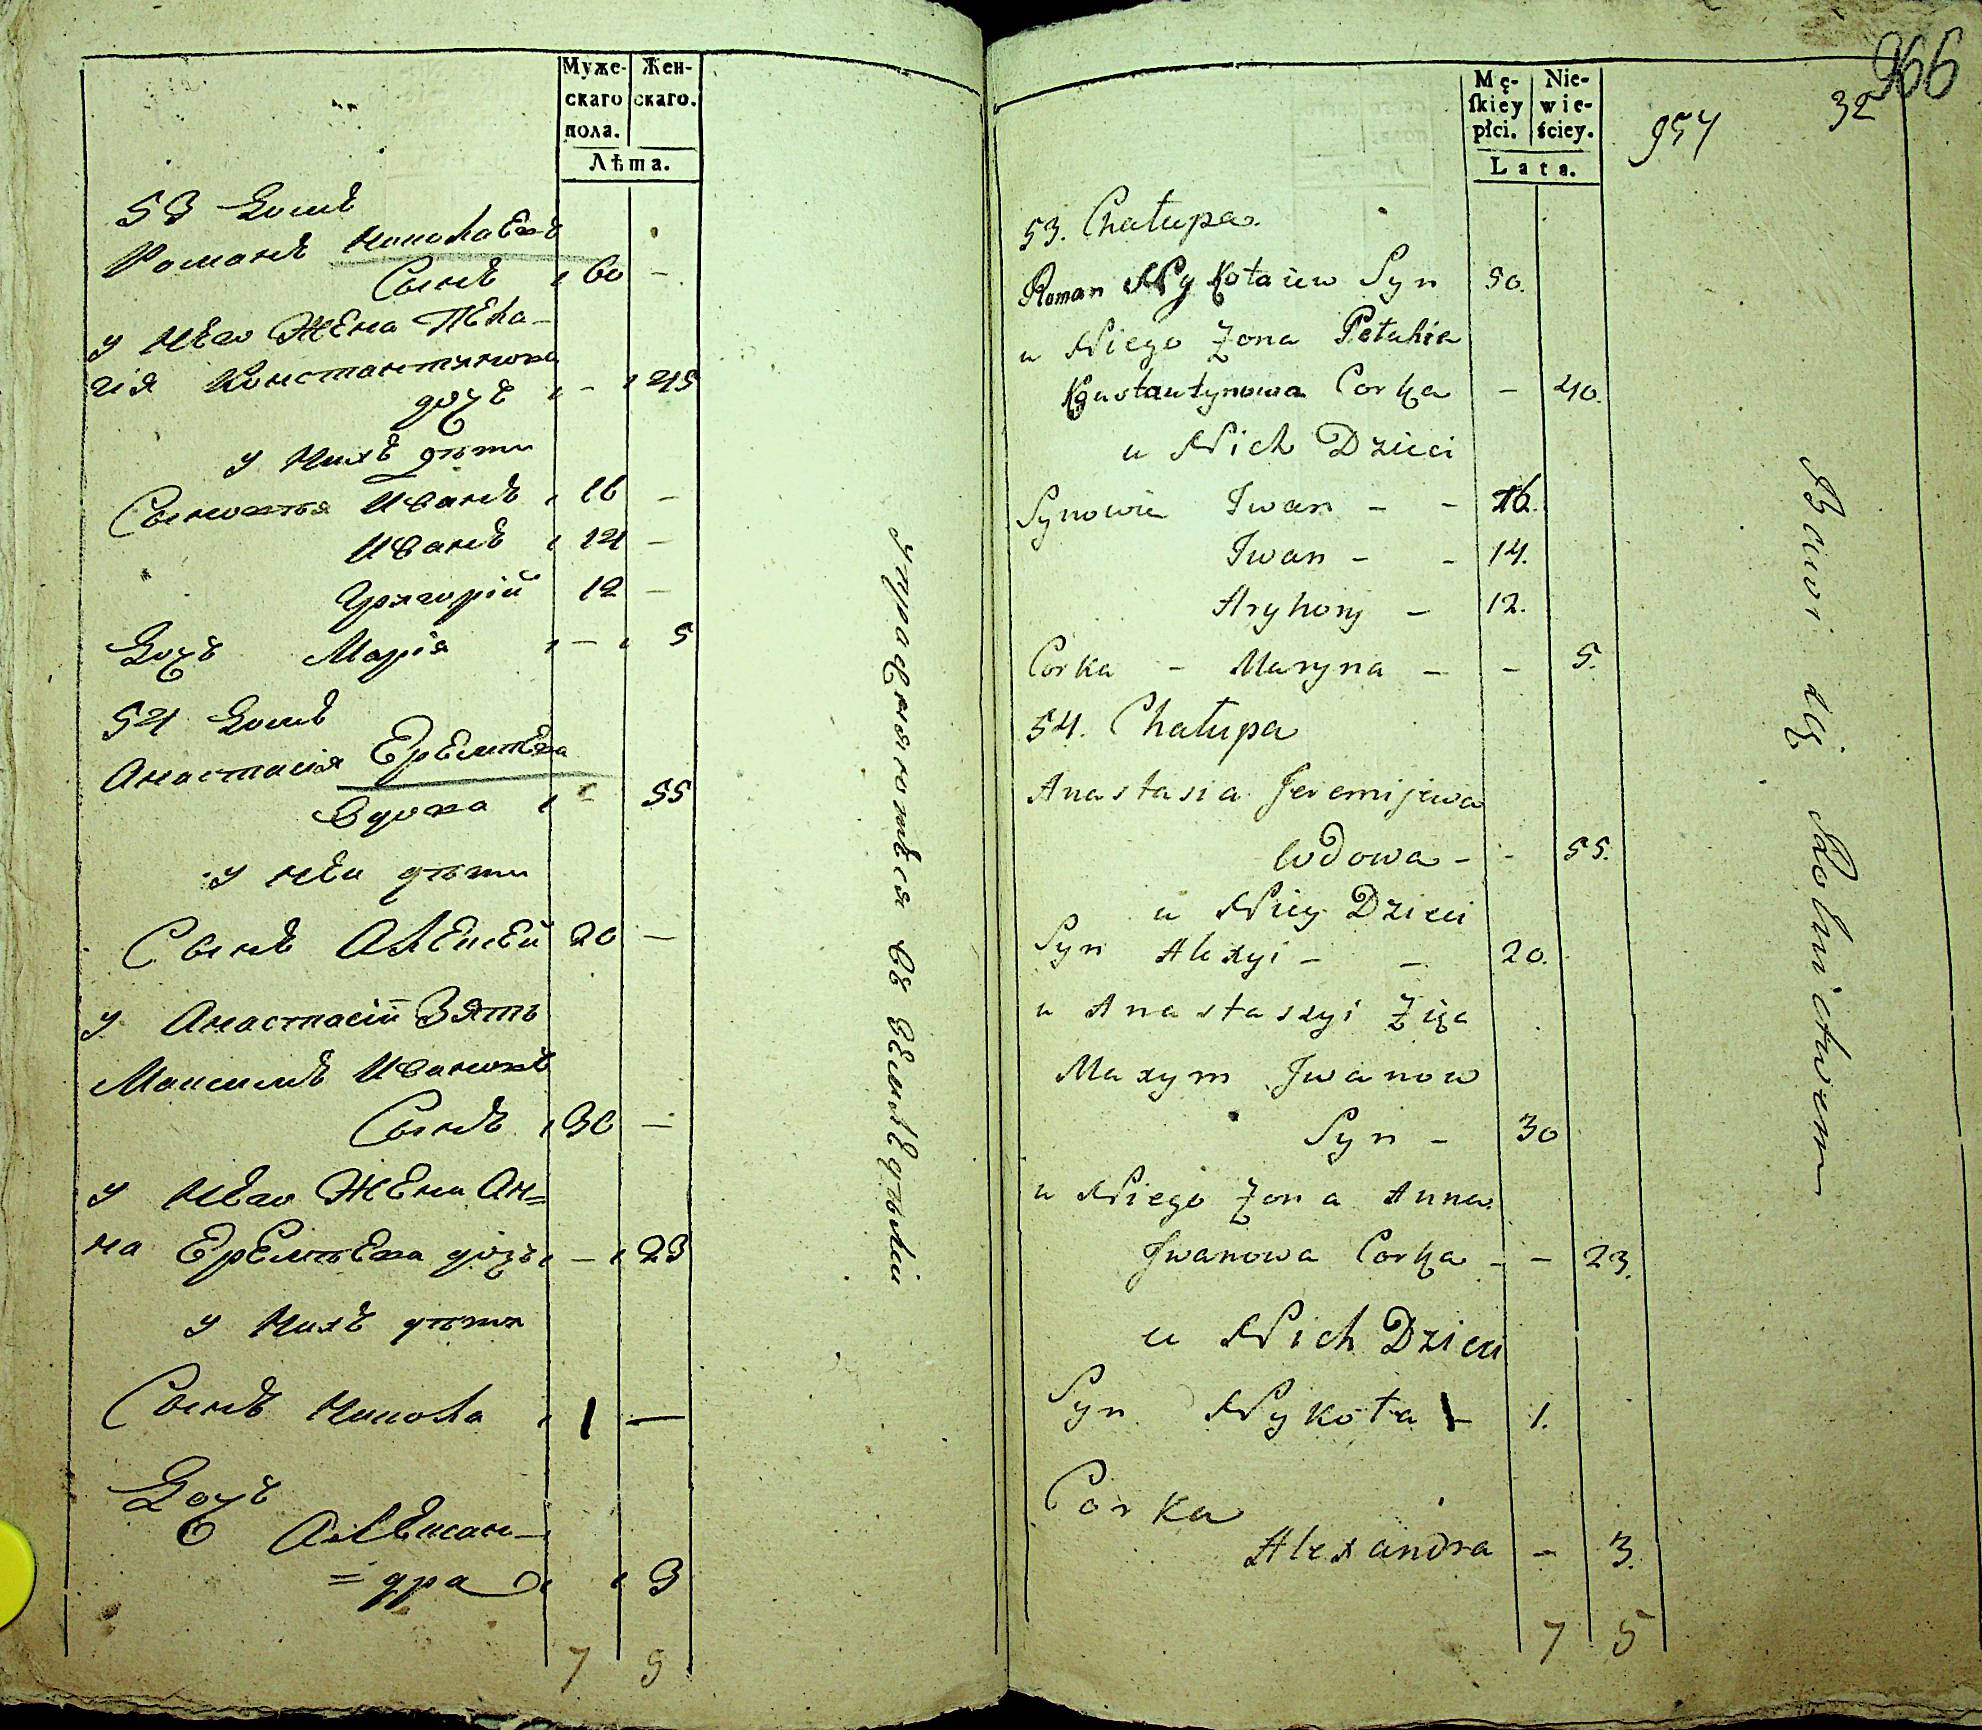 Муже-
скаго
пола.
Жен-
скаго.
Лѣта.
53 Домъ
Романъ Николаевъ
Сынъ 60 -
у него Жена Пела-
гія Константинова
дочь - 45
у нихъ дѣти
Сыновья Иванъ 16 -
Иванъ 14 -
Григорій 12 -
Дочь Марія - 5
54 Домъ
Анастасія Еремѣева
вдова - 55
у неи дѣти
Сынъ Алексѣй 20 -
у Анастасіи Зять
Максимъ Ивановъ
Сынъ 30 -
у него Жена Ан=
на Еремѣева дочь - 23
у нихъ дѣти
Сынъ Никола 1 -
Дочь
Алексан-
=дра 3
7 5
упражняются въ земледѣліи
Mę-
skiey
płci.
Nie-
wie-
ściey.
Lata.
966
32
954
53. Chałupa.
Roman Nykołaiew Syn 50.
u Niego Zona Petahia
Konstantynowa Corka - 40.
u Nich Dzieci
Synowie Iwan - - 16.
Iwan - - 14.
Aryhory - 12.
Corka - Maryna - - 5.
54. Chałupa
Anastasia Jeremijewa
Wdowa - - 55.
u Niey Dzieci
Syn Alexyi - - 20.
u Anastazyi Zięc
Maxym Iwanow
Syn - 30
u Niego Zona Anna
Iwanowa Corka - - 23.
u Nich Dzieci
Syn Nykoła - 1.
Corka
Alexandra - 3.
7 5
Bawi się Rolnictwem